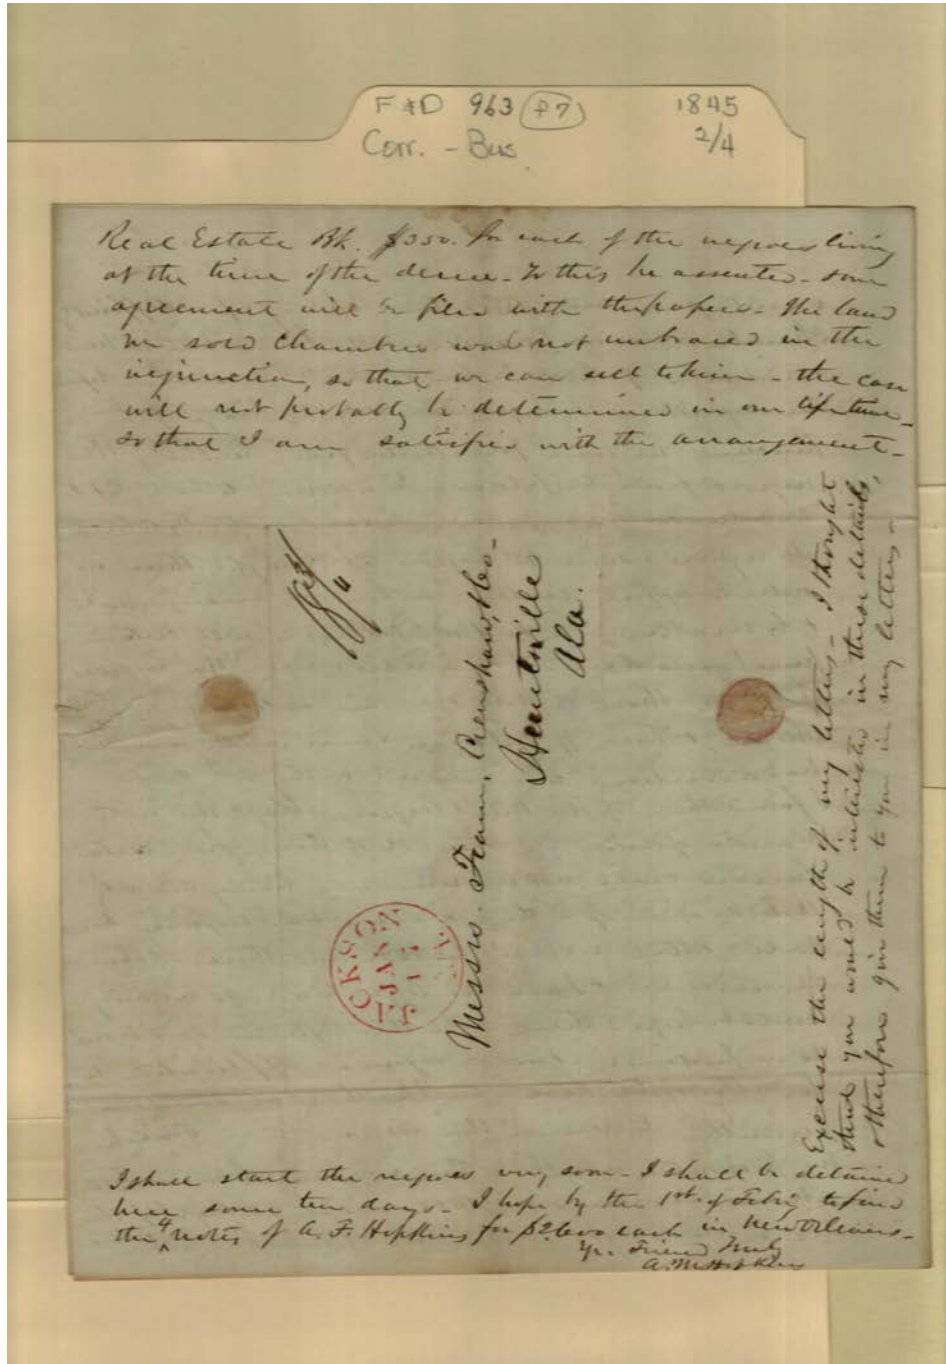 F&D 963 (f7) 1845
Corr. - Bus 2/4
Real Estate Bk. $350. for each of the negroes living
at the time of the decree - To this he assented - some
agreement will be filed with the papers - The land
we sold Chambers was not embraced in the
injunction, so that we can sell to him - the case
will not probably be determined in our lifetime -
so that I am satisfied with the arrangement -
Messrs. Fearn, Crenshaw, & Co -
Huntsville
Ala.
JACKSON
JAN
Excuse the length of my letters - I thought
that you would be interested in these details,
& therefore give them to you in my letters -
I shall start the negroes very soon - I shall be detained
here some ten days - I hope by the 1st. of Feby to find
the 4 notes of A. F. Hopkins for $2600 each in New Orleans -
Yr. Friend Truly
A. M. Hopkins